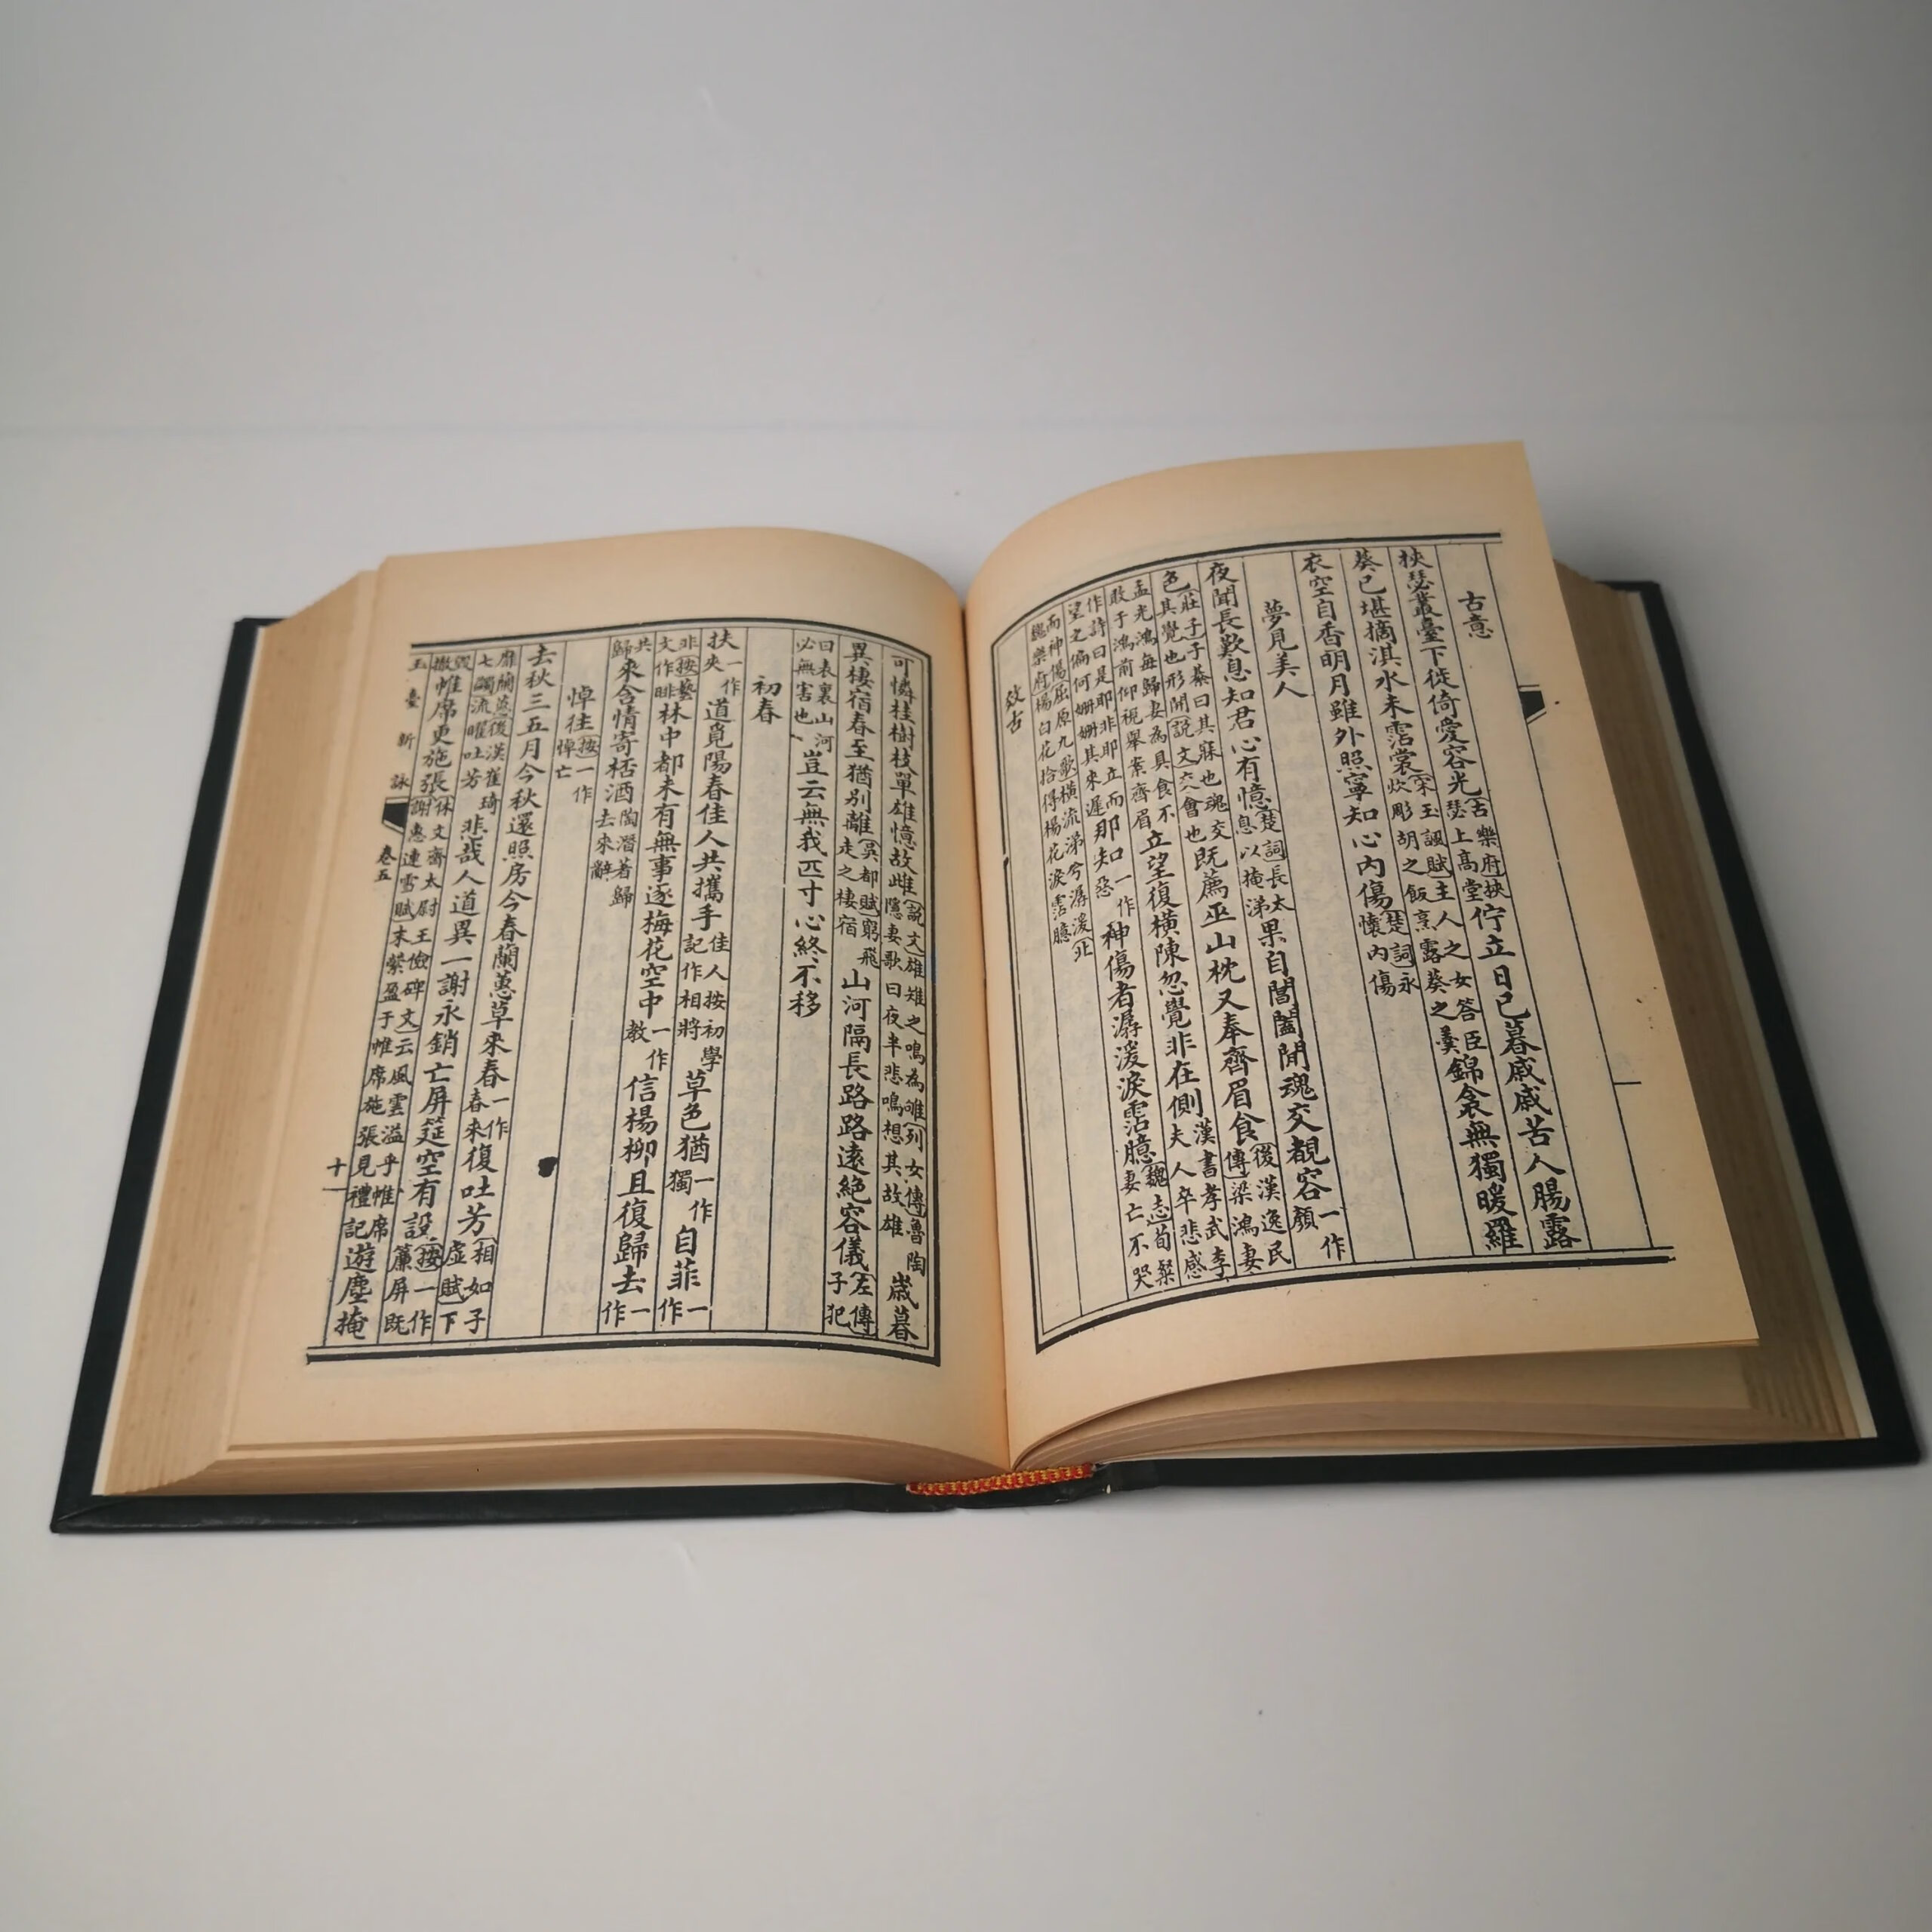 古意
挾瑟叢臺下徙倚愛容光古樂府挾瑟上高堂佇立日已暮戚戚苦人腸露
葵已堪摘淇水未霑裳宋玉諷賦主人之女答臣炊彫胡之飯烹露葵之羹錦衾無獨暖羅
衣空自香明月雖外照寧知心內傷楚詞永懷內傷
夢見美人
夜聞長歎息知君心有憶楚詞長太息以掩涕果自閶闔開魂交覩容一作顏
色莊子子綦曰其寐也魂交其覺也形開說文六會也既薦巫山枕又奉齊眉食後漢逸民傳梁鴻妻
孟光鴻每歸妻為具食不敢于鴻前仰視舉案齊眉立望復橫陳忽覺非在側漢書孝武李夫人卒悲感
作詩曰是耶非耶立而望之偏何姍姍其來遲那知一作恐神傷者潺湲淚霑臆魏志荀粲妻亡不哭
而神傷屈原九歌橫流涕兮潺湲北魏樂府楊白花拾得楊花淚霑臆
效古
可憐桂樹枝單雄憶故雌說文雄雉之鳴為雊列女傳魯陶隱妻歌曰夜半悲鳴想其故雄歲暮
異棲宿春至猶別離吳都賦窮飛走之棲宿山河隔長路路遠絕容儀左傳子犯
曰表裏山河必無害也豈云無我匹寸心終不移
初春
扶一作夾道覓陽春佳人共攜手佳人按初學記作相將草色猶一作獨自菲一作
非按藝文作腓林中都未有無事逐梅花空中一作教信楊柳且復歸去一作
共歸來含情寄桮酒陶潛著歸去來辭
悼往按一作悼亡
去秋三五月今秋還照房今春蘭蕙草來春一作春來復吐芳相如子虛賦下
靡蘭蕙後漢崔琦七蠲流曜吐芳悲哉人道異一謝永銷亡屏筵空有設按一作簾屏既
毀撤帷席更施張休文齊太尉王儉碑文云風雲溢乎帷席謝惠連雪賦末縈盈于帷席施張見禮記遊塵掩
玉臺新詠 卷五 十